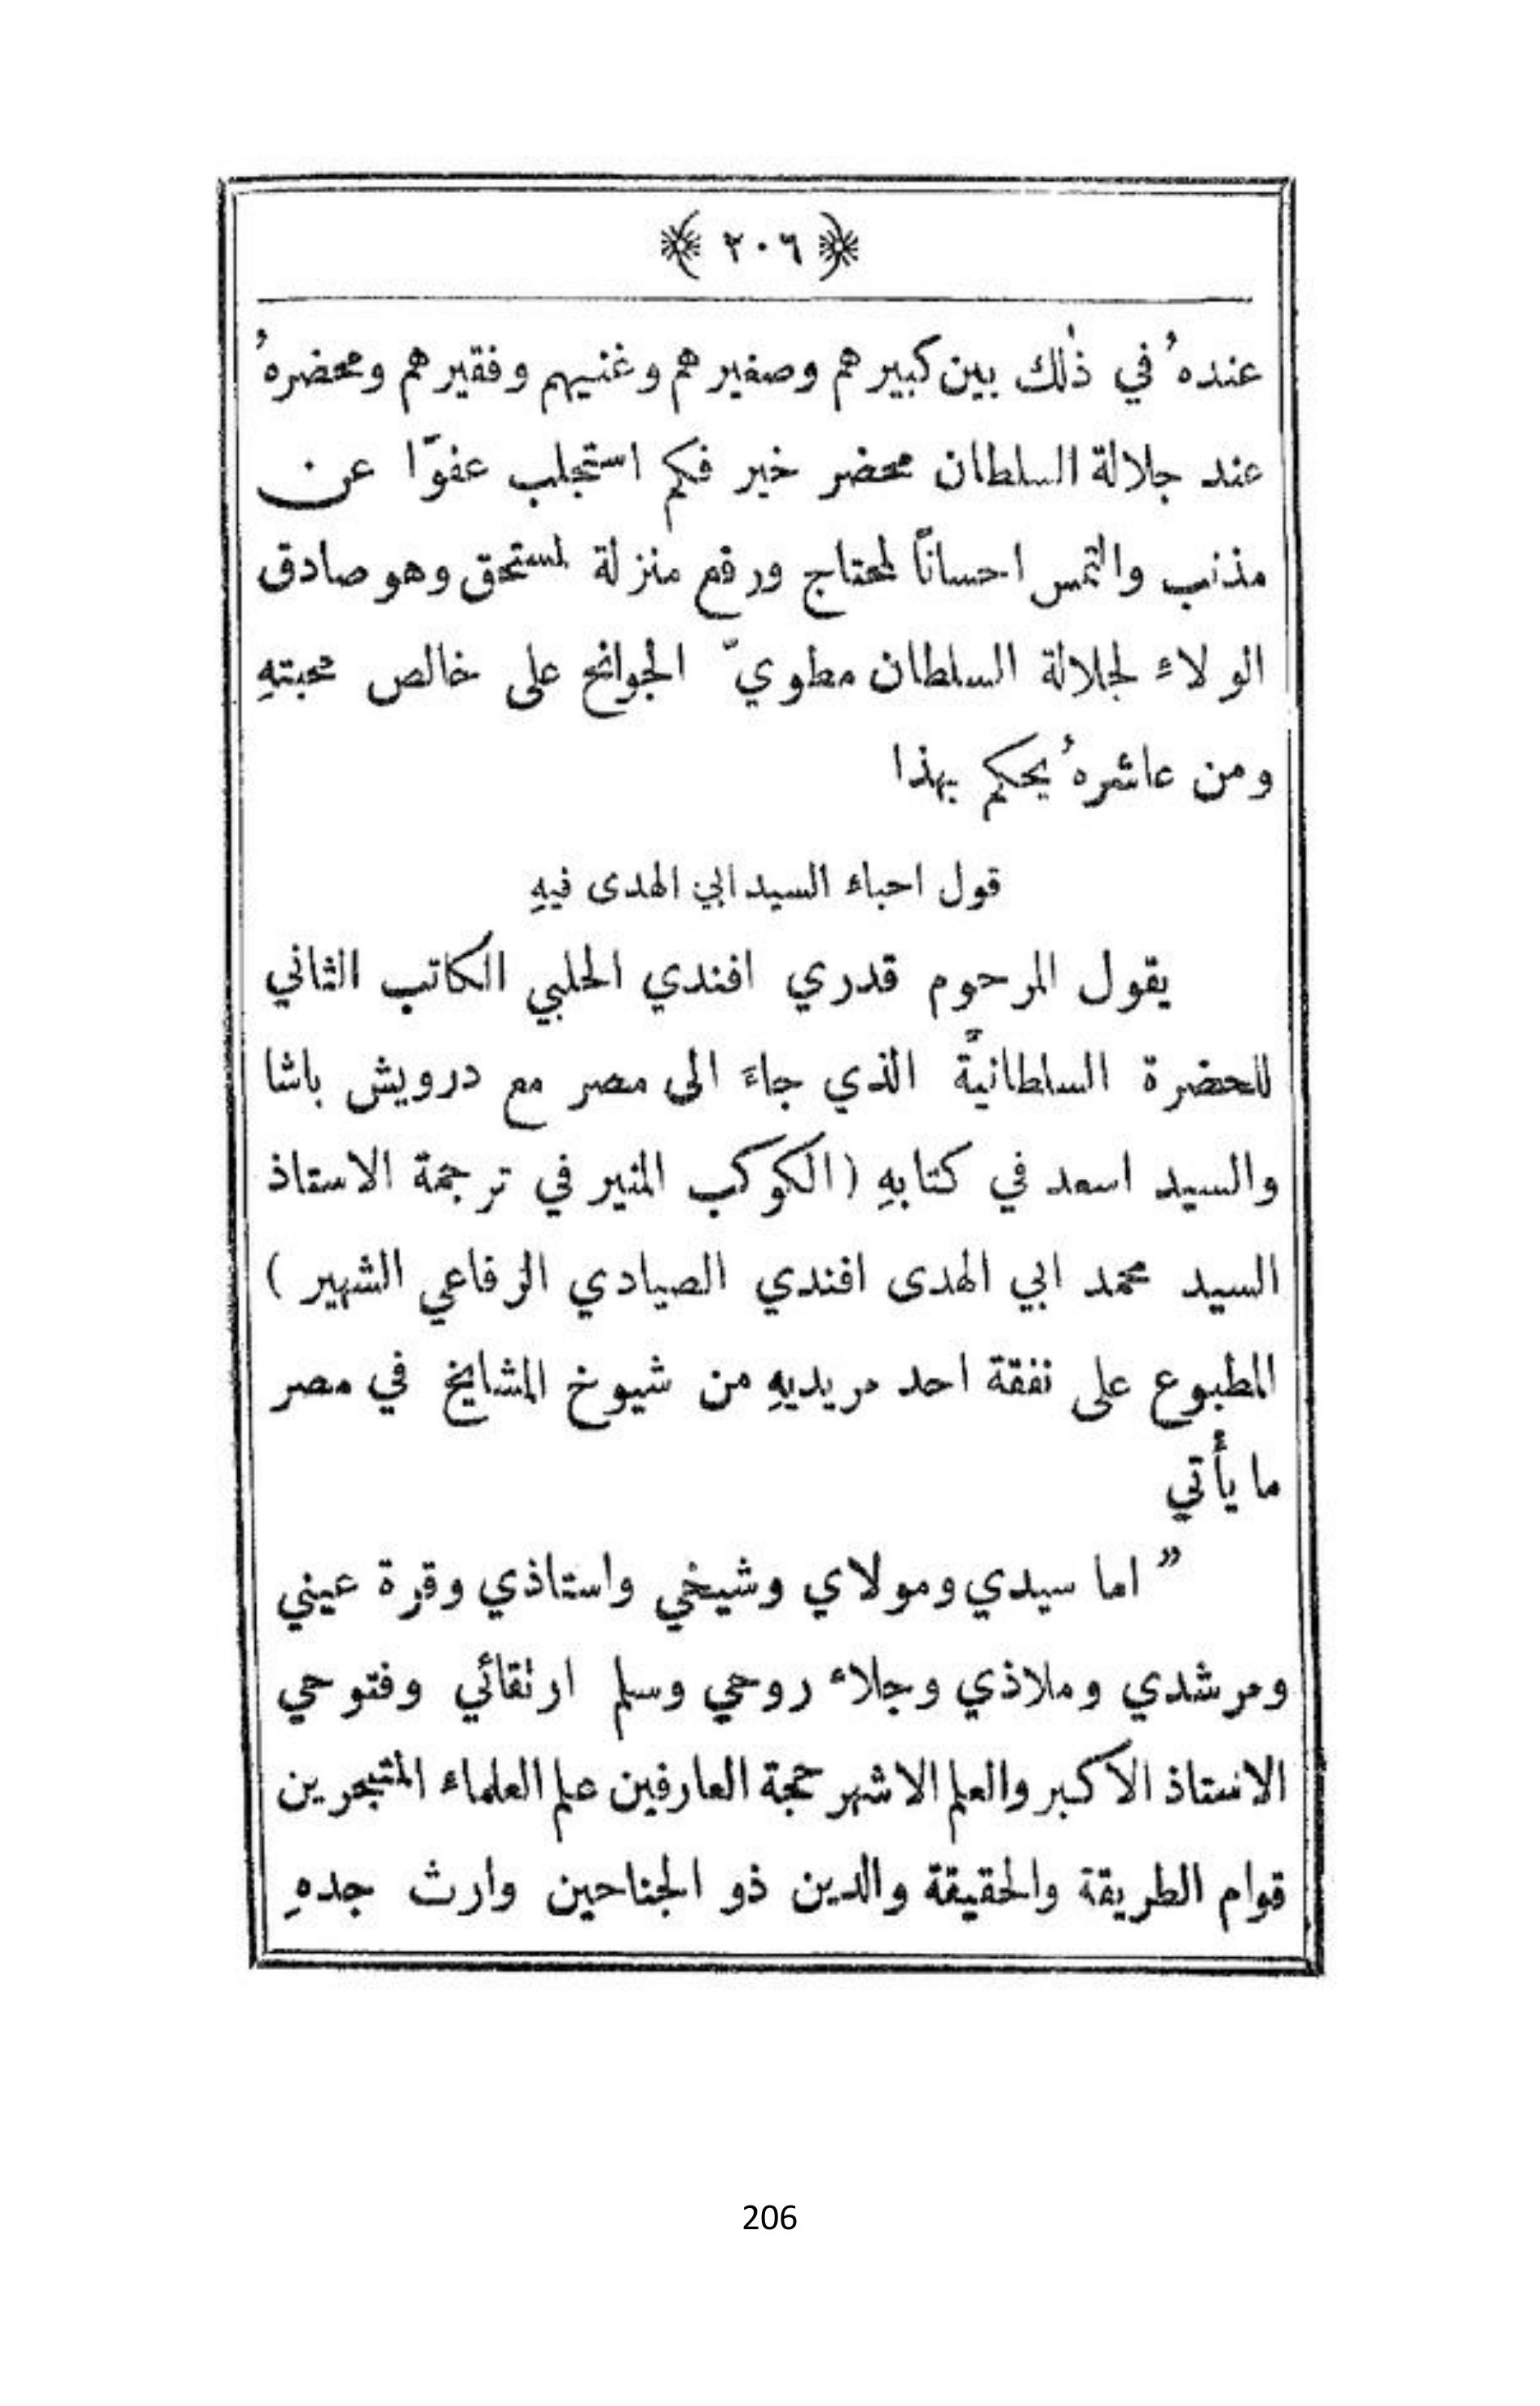 ﴿ ٢٠٦ ﴾
عندهُ في ذٰلك بين كبيرهم وصغيرهم وغنيهم وفقيرهم ومحضرهُ
عند جلالة السلطان محضر خير فكم استجلب عفوًا عن
مذنب والتمس احسانًا لمحتاج ورفع منزلة لمستحق وهو صادق
الولاءِ لجلالة السلطان مطويّ الجوانح على خالص محبتهِ
ومن عاشرهُ يحكم بهذا
قول احباء السيد ابي الهدى فيهِ
يقول المرحوم قدري افندي الحلبي الكاتب الثاني
للحضرة السلطانيَّة الذي جاءَ الى مصر مع درويش باشا
والسيد اسعد في كتابهِ (الكوكب المنير في ترجمة الاستاذ
السيد محمد ابي الهدى افندي الصيادي الرفاعي الشهير )
المطبوع على نفقة احد مريديهِ من شيوخ المشايخ في مصر
ما يأتي
” اما سيدي ومولاي وشيخي واستاذي وقرة عيني
ومرشدي وملاذي وجلاء روحي وسلم ارتقائي وفتوحي
الاستاذ الاكبر والعلم الاشهر حجة العارفين علم العلماء المتبحرين
قوام الطريقة والحقيقة والدين ذو الجناحين وارث جدهِ
206